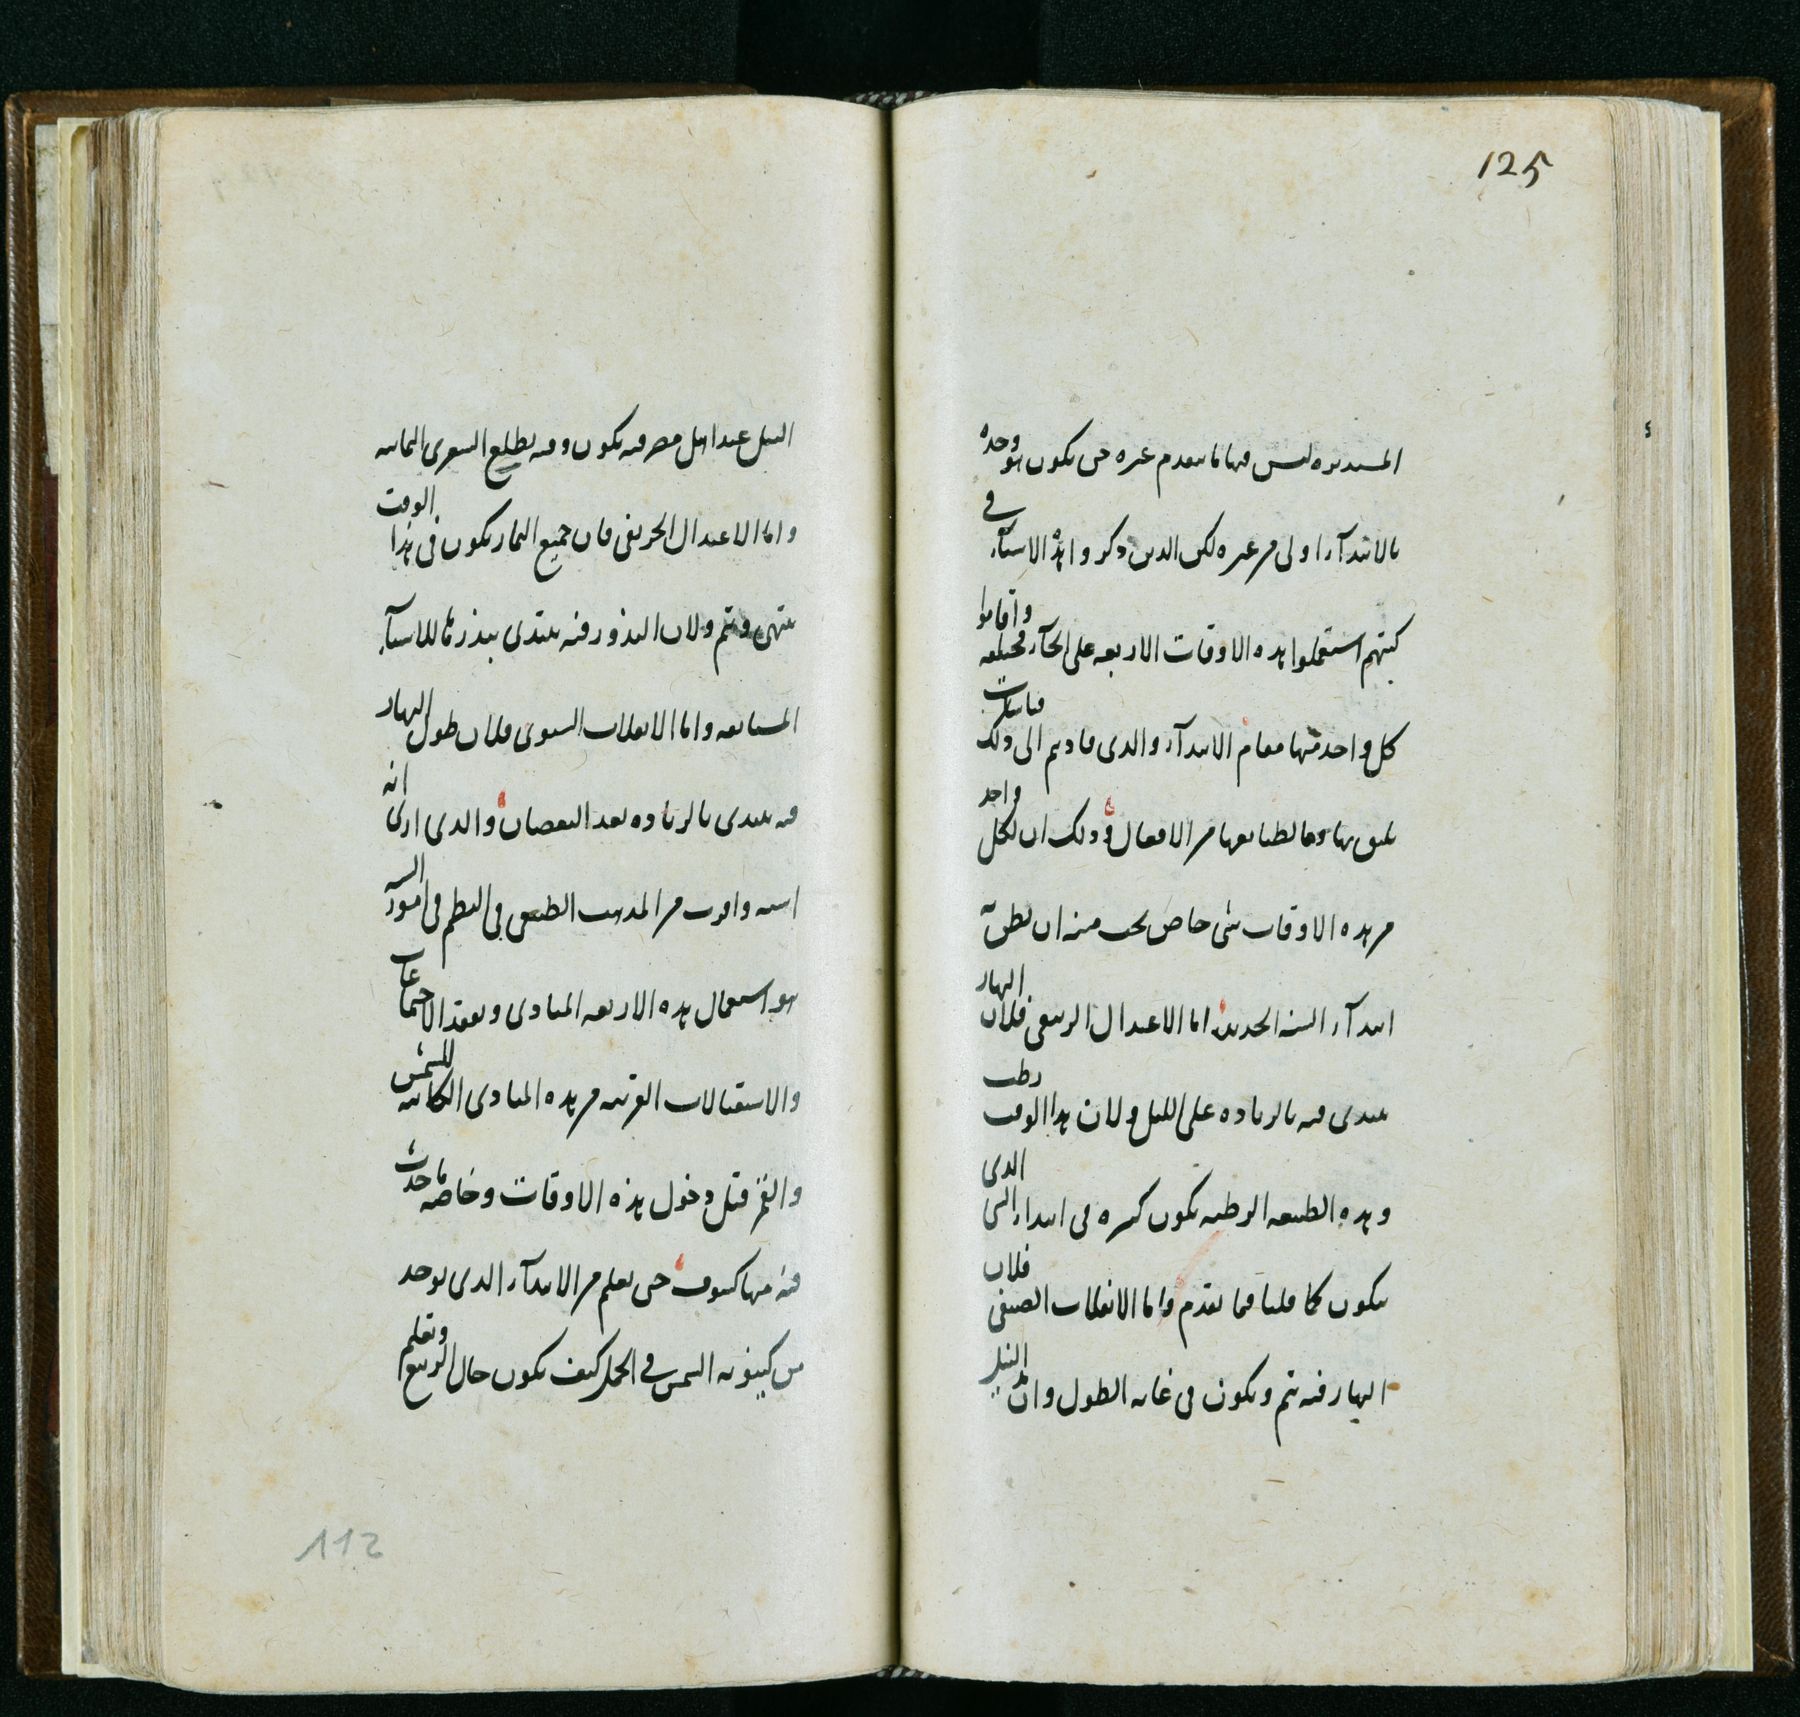 125
المستديره ليس فيها ما يتقدم غيره حتى يكون هو وحده
بالابتدآء اولى من غيره لكن الذين ذكروا هذه الاشيآء في
كتبهم استعملوا هذه الاوقات الاربعه على انحآء مختلفه واقاموا
كل واحد منها مقام الابتدآء والذى قادهم الى ذلك مناسبات
تليق بها وبما لطبايعها من الافعال وذلك ان لكل واحد
من هذه الاوقات شى خاص يجب منه ان يظن به
ابتدآء السنه الحديثه اما الاعتدال الربيعى فلان النهار
يبتدى فيه بالزياده على الليل ولان هذا الوقت رطب
وهذه الطبيعه الرطبه تكون كثيره فى ابتداء الشى الذى
يتكون كما قلنا فيما تقدم واما الانقلاب الصيفى فلان
النهار فيه يتم ويكون فى غايه الطول وان النيل
النيل عند اهل مصر فيه يكون وفيه يطلع الشعرى اليمانيه
واما الاعتدال الخريفى فان جميع الثمار تكون فى هذا الوقت
ينتهى وتتم ولان البذور فيه يبتدى ببذر ما للاشيآء
المستانفه واما الانقلاب الشتوى فلان طول النهار
فيه يبتدى بالزياده بعد النقصان والذى ارى انه
اشبه واقرب من المذهب الطبيعى فى النظر فى امور السنه
هو استعمال هذه الاربعه المبادى وتفقد الاجتماعات
والاستقبالات القريبه من هذه المبادى الكاينه للشمس
والقمر قبل دخول هذه الاوقات وخاصه ما حدث
فيه منها كسوف حتى يعلم من الابتدآء الذى يوخذ
من كينونه الشمس في الحمل كيف يكون حال الربيع ونعلم
112